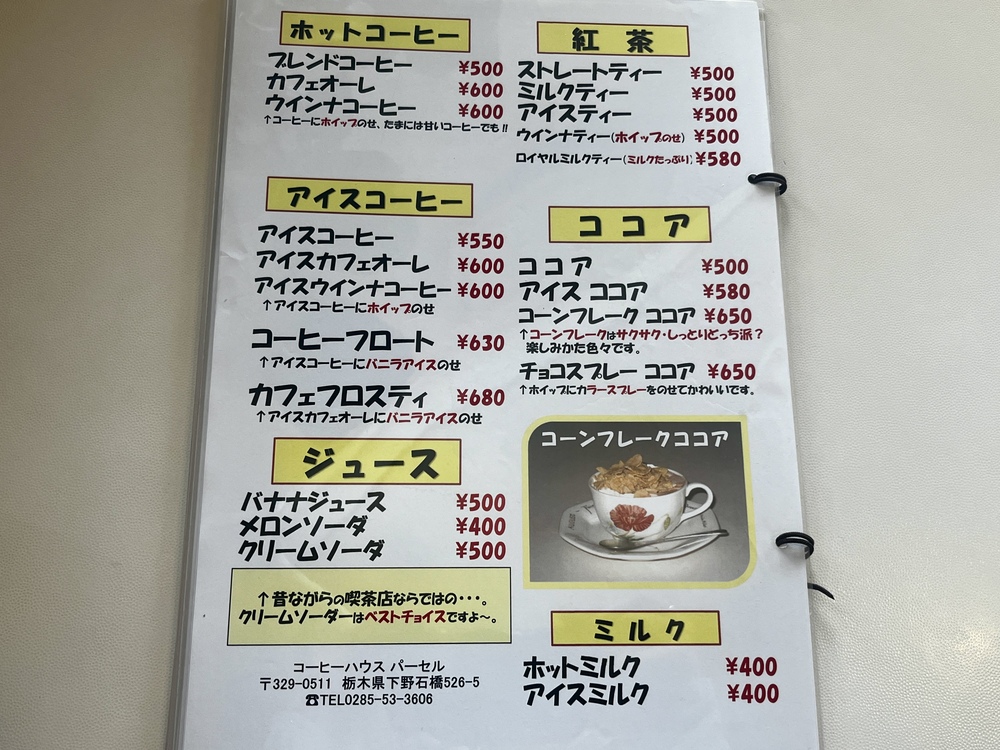 ホットコーヒー
ブレンドコーヒー ¥500
カフェオーレ ¥600
ウインナコーヒー ¥600
↑コーヒーにホイップのせ、たまには甘いコーヒーでも!!
アイスコーヒー
アイスコーヒー ¥550
アイスカフェオーレ ¥600
アイスウインナコーヒー ¥600
↑アイスコーヒーにホイップのせ
コーヒーフロート ¥630
↑アイスコーヒーにバニラアイスのせ
カフェフロスティ ¥680
↑アイスカフェオーレにバニラアイスのせ
ジュース
バナナジュース ¥500
メロンソーダ ¥400
クリームソーダ ¥500
↑昔ながらの喫茶店ならではの・・・。
クリームソーダーはベストチョイスですよ～。
コーヒーハウス パーセル
〒329-0511 栃木県下野石橋526-5
☎TEL0285-53-3606
紅 茶
ストレートティー ¥500
ミルクティー ¥500
アイスティー ¥500
ウインナティー(ホイップのせ) ¥500
ロイヤルミルクティー(ミルクたっぷり) ¥580
コ コ ア
コ コ ア ¥500
アイス ココア ¥580
コーンフレーク ココア ¥650
↑コーンフレークはサクサク・しっとりどっち派？
楽しみかた色々です。
チョコスプレー ココア ¥650
↑ホイップにカラースプレーをのせてかわいいです。
コーンフレークココア
ミ ル ク
ホットミルク ¥400
アイスミルク ¥400